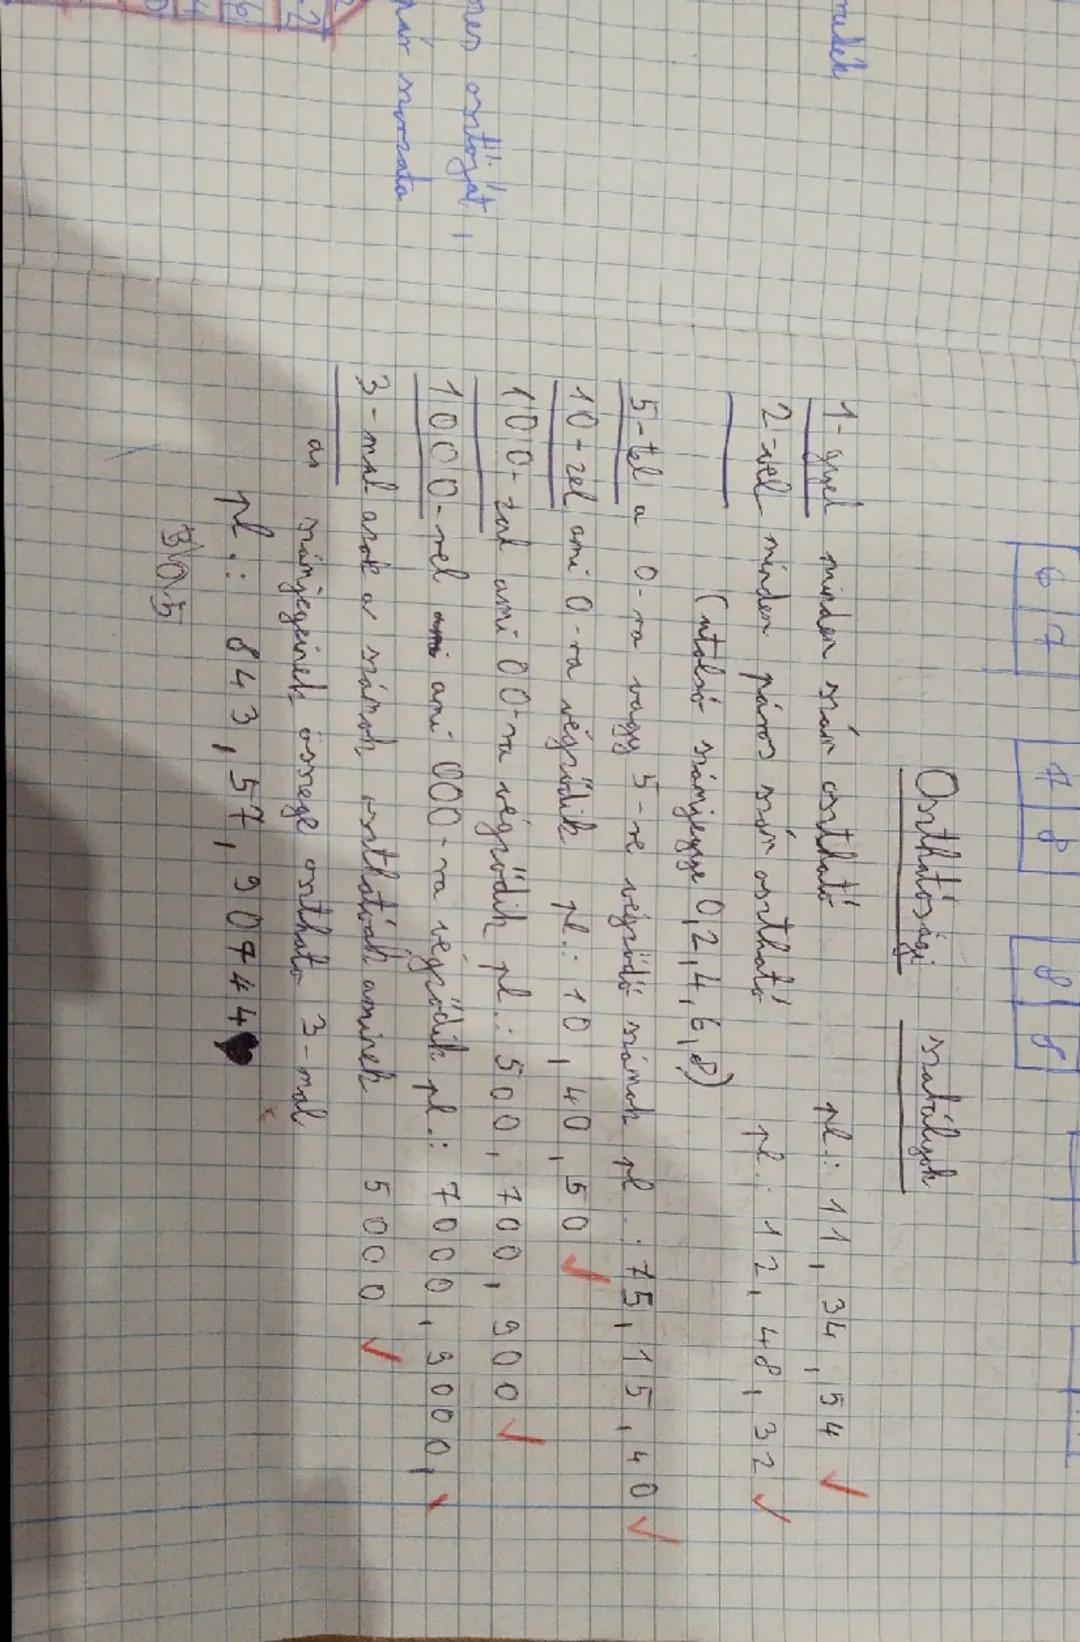 radék
nes osztóját,
pár szorzata
6 7
7 8
8 8
Oszthatósági szabályok
1-gyel minden szám osztható pl.: 11, 34, 54
2-vel minden páros szám osztható pl.: 12, 48, 32
(utolsó számjegye 0, 2, 4, 6, 8)
5-tel a 0-ra vagy 5-re végződő számok pl.: 75, 15, 40
10-zel ami 0-ra végződik pl.: 10, 40, 50
100-zal ami 00-ra végződik pl.: 500, 700, 900
1000-rel ami 000-ra végződik pl.: 7000, 9000,
3-mal azok a számok oszthatóak aminek 5000
az számjegyeinek összege osztható 3-mal
pl.: 843, 57, 90744